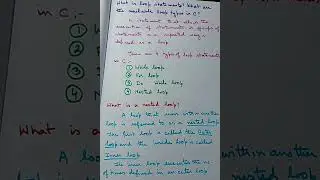 What is loop statements? What are
the available loop types in C?
A statement that allows the
execution of statements or groups of
statements in a repeated way is
defined as a loop
There are 4 types of loop statements
in C:-
① While loop
② For loop
③ Do While loop
④ Nested loop
What is a nested loop?
A loop that runs within another
loop is referred to as a nested loop.
The first loop is called the Outer
loop and the inside loop is called
Inner loop
The inner loop executes the no.
of times defined in an outer loop